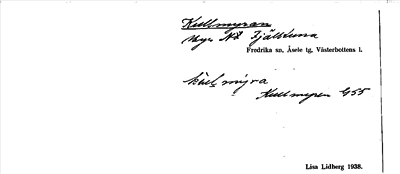 Kullmyran
Myr NÖ Fjälltuna
Fredrika sn, Åsele tg, Västerbottens l.
Kullmyren G55
Lisa Lidberg 1938.